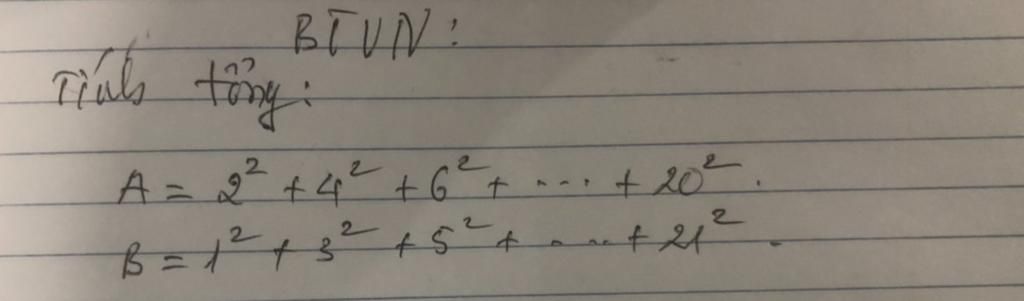 BTVN:
Tính tổng:
A = 2² + 4² + 6² + .... + 20².
B = 1² + 3² + 5² + .... + 21².